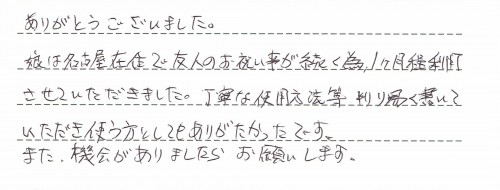 ありがとうございました。
娘は名古屋在住で友人のお祝い事が続く為、1ヶ月程利用
させていただきました。丁寧な使用方法等 判り易く書いて
いただき使う方としてもありがたかったです。
また、機会がありましたら お願いします。